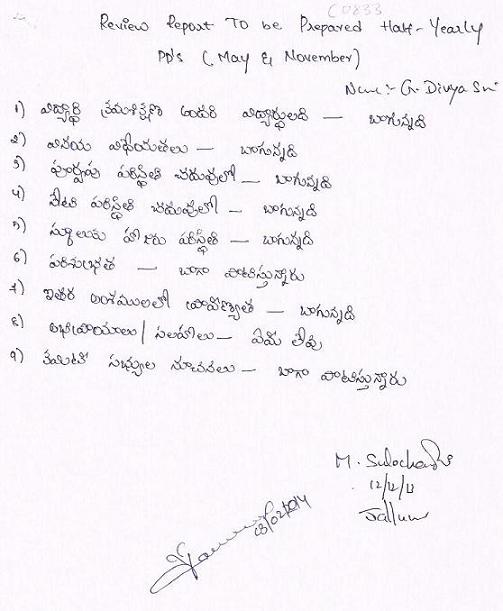 C0833
Review Report To be Prepared Half-Yearly
PD's (May & November)
Name:- G. Divya Sri
1) విద్యార్థి క్రమశిక్షణ అందరి విద్యార్థులది — బాగున్నది
2) వినయ విధేయతలు — బాగున్నది
3) పూర్వపు పరిస్థితి చదువులో — బాగున్నది
4) నేటి పరిస్థితి చదువులో — బాగున్నది
5) స్కూలుకు హాజరు పరిస్థితి — బాగున్నది
6) పరిశుభ్రత — బాగా పాటిస్తున్నారు
7) ఇతర అంశములలో ప్రావీణ్యత — బాగున్నది
8) అభిప్రాయాలు/సలహాలు — ఏమి లేవు
9) కమిటి సభ్యుల సూచనలు — బాగా పాటిస్తున్నారు
M. Sulochana
12/12/13
03/02/2014